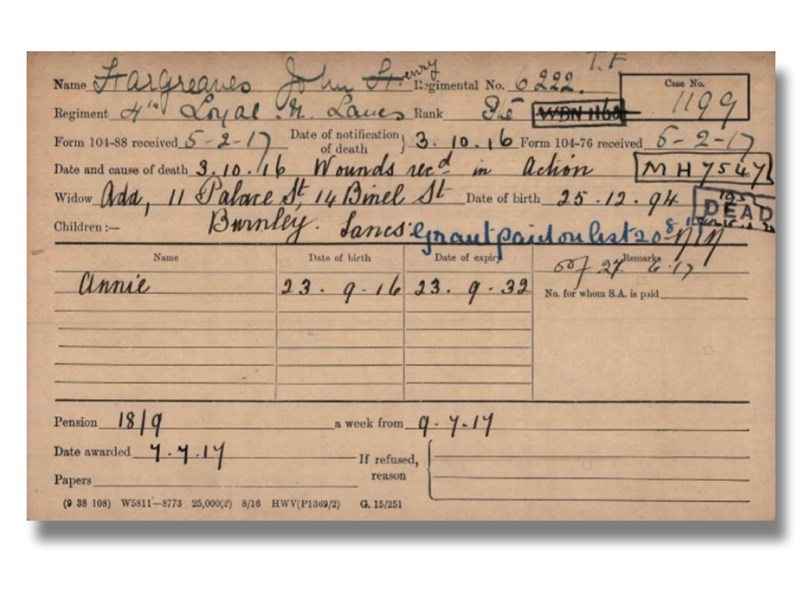 T.F
Name Hargreaves John Henry Regimental No. 6222. Case No. 1199
Regiment 4th Loyal N. Lancs Rank Pte WBN 1162
Form 104-88 received 5-2-17 Date of notification of death 3.10.16 Form 104-76 received 5-2-17
Date and cause of death 3.10.16 Wounds recd in Action MH7547
Widow Ada, 11 Palace St, 14 Binel St Date of birth 25.12.94 DEAD
Children :— Burnley. Lancs. Grant paid on list 208
Name Date of birth Date of expiry Remarks
27 6.17
Annie 23.9.16 23.9.32 No. for whom S.A. is paid
Pension 18/9 a week from 9-7-17
Date awarded 7.7.17 If refused, reason
Papers
(9 38 108) W5811—8773 25,000(2) 8/16 HWV(P1369/2) G. 15/251